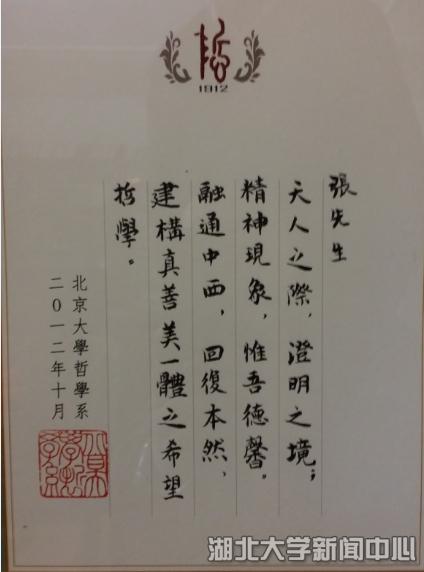 哲
1912
張先生
天人之際，澄明之境；
精神現象，惟吾德馨。
融通中西，回復本然，
建構真善美一體之希望
哲學。
北京大學哲學系
二〇一二年十月
湖北大学新闻中心